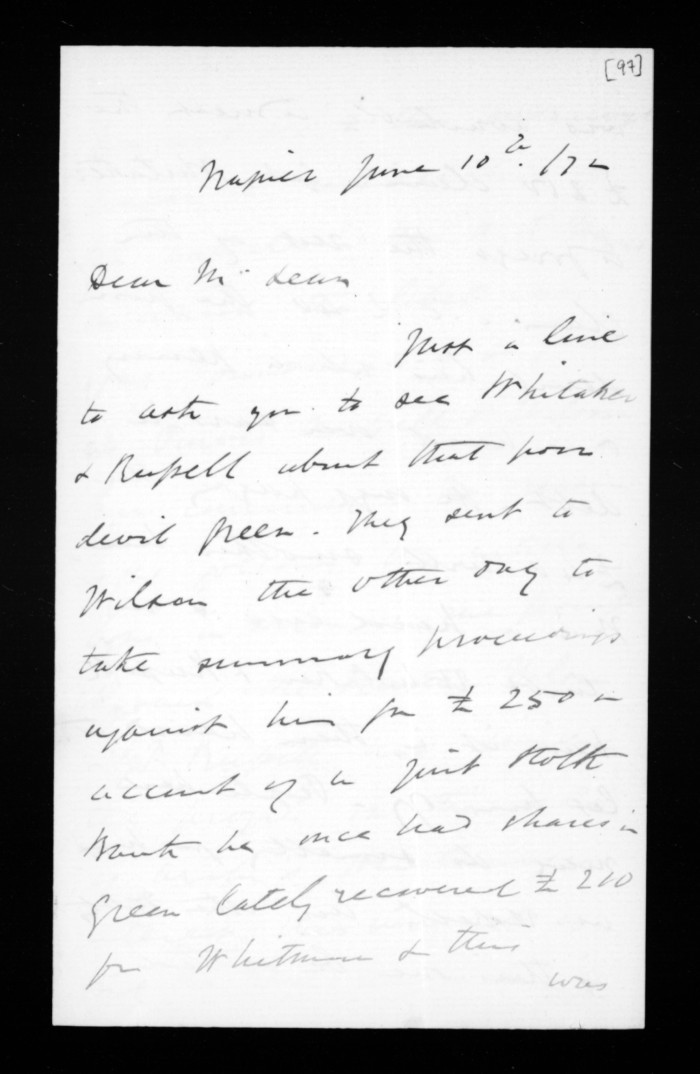 [97]
Napier June 10th /72
Dear McLean
Just a line
to ask you to see Whitaker
& Russell about that poor
devil Green. They sent to
Wilson the other day to
take summary proceedings
against him for £250 on
account of a Joint Stock
Bank he once had shares in
Green lately recovered £210
for Whitmore & this
was